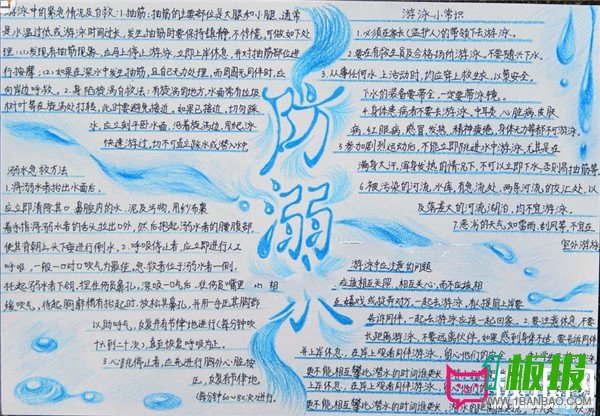 游泳中的紧急情况及自救:1.抽筋:抽筋的主要部位是大腿和小腿,通常
是水温过低或游泳时间过长,发生抽筋时要保持镇静,不惊慌,可做如下处
理:(1)发现有抽筋现象,应马上停止游泳,立即上岸休息,并对抽筋部位进
行按摩;(2)如果在深水中发生抽筋,且自己无力处理,而周围无同伴时,应
向岸边呼救。2.身陷漩涡自救法:有漩涡的地方,水面常有垃圾
树叶等在漩涡处打转,此时要避免接近,如果已接近,切勿踩
水,应立刻平卧水面,沿着漩涡边,用爬泳
快速游过,切不可直立踩水或潜入水中。
溺水急救方法
1.将溺水者抬出水面后,
应立即清除其口、鼻腔内的水、泥及污物,用纱布裹
着手指将溺水者的舌头拉出口外,然后抱起溺水者的腰腹部,
使其背朝上头下垂进行倒水。2.呼吸停止者,应立即进行人工
呼吸,一般以口对口吹气为最佳,急救者位于溺水者一侧,
托起溺水者下颌,捏住伤员鼻孔,深吸一口气后,往伤员嘴里
缓缓吹气,待起胸廓稍有抬起时,放松其鼻孔,并用一手压其胸部
以助呼气,反复并有节律地进行(每分钟吹
16到二十次),直致恢复呼吸为止。
3.心跳停止者,应先进行胸外心脏按
压,反复有节律地
(每分钟60~80次)进行。
防溺水
游泳小常识
1.必须在家长(监护人)的带领下去游泳。
2.要在有救生员及合格场所游泳,不要随兴下水。
3.从事任何水上活动时,均应穿上救生衣,以策安全。
下水的装备要带全,一定要带泳镜。
4.身体患病者不要去游泳,中耳炎、心脏病、皮肤
病、红眼病、感冒发热、精神疲倦、身体无力等都不可游泳。
5.参加剧烈运动后,不能立即跳进水中游泳,尤其是在
满身大汗,浑身发热的情况下,不可以立即下水,否则易抽筋等。
6.被污染的河流、水库、有急流处、两条河流的交汇处,以
及落差大的河流湖泊,均不宜游泳。
7.恶劣的天气如雷雨、刮风等,不宜在
室外游泳
游泳中应注意的问题
应该相互关照,相互关心,而不应该相
互嬉戏或捉弄对方,一起去游泳,

长距离游泳,不要远离伙伴,如果感到身体不适,要告诉同伴
并上岸休息,在岸上观看同伴游泳,留心他们的安全。
更不能,相互攀比,潜水的时间谁更长
板报
WWW.1BANBAO.COM